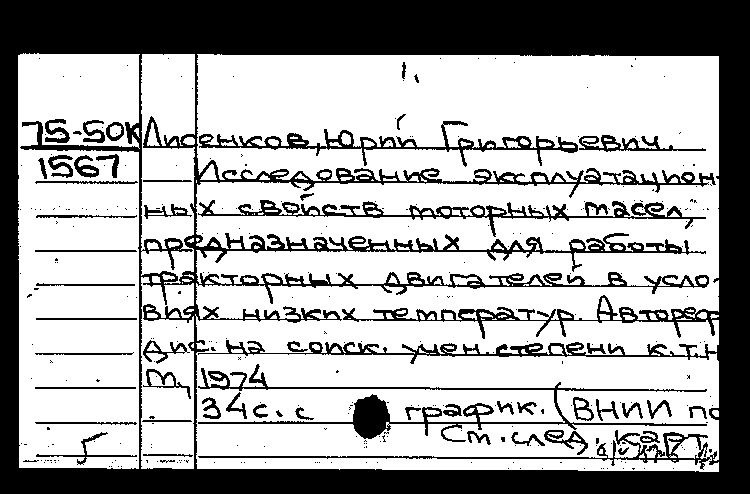 1.
75-50К Лисенков, Юрий Григорьевич.
1567 Исследование эксплуатацион-
ных свойств моторных масел,
предназначенных для работы
тракторных двигателей в усло-
виях низких температур. Автореф
дис. на соиск. учен. степени к.т.н
М., 1974
34с. с график. (ВНИИ по
См. след. карт.
5